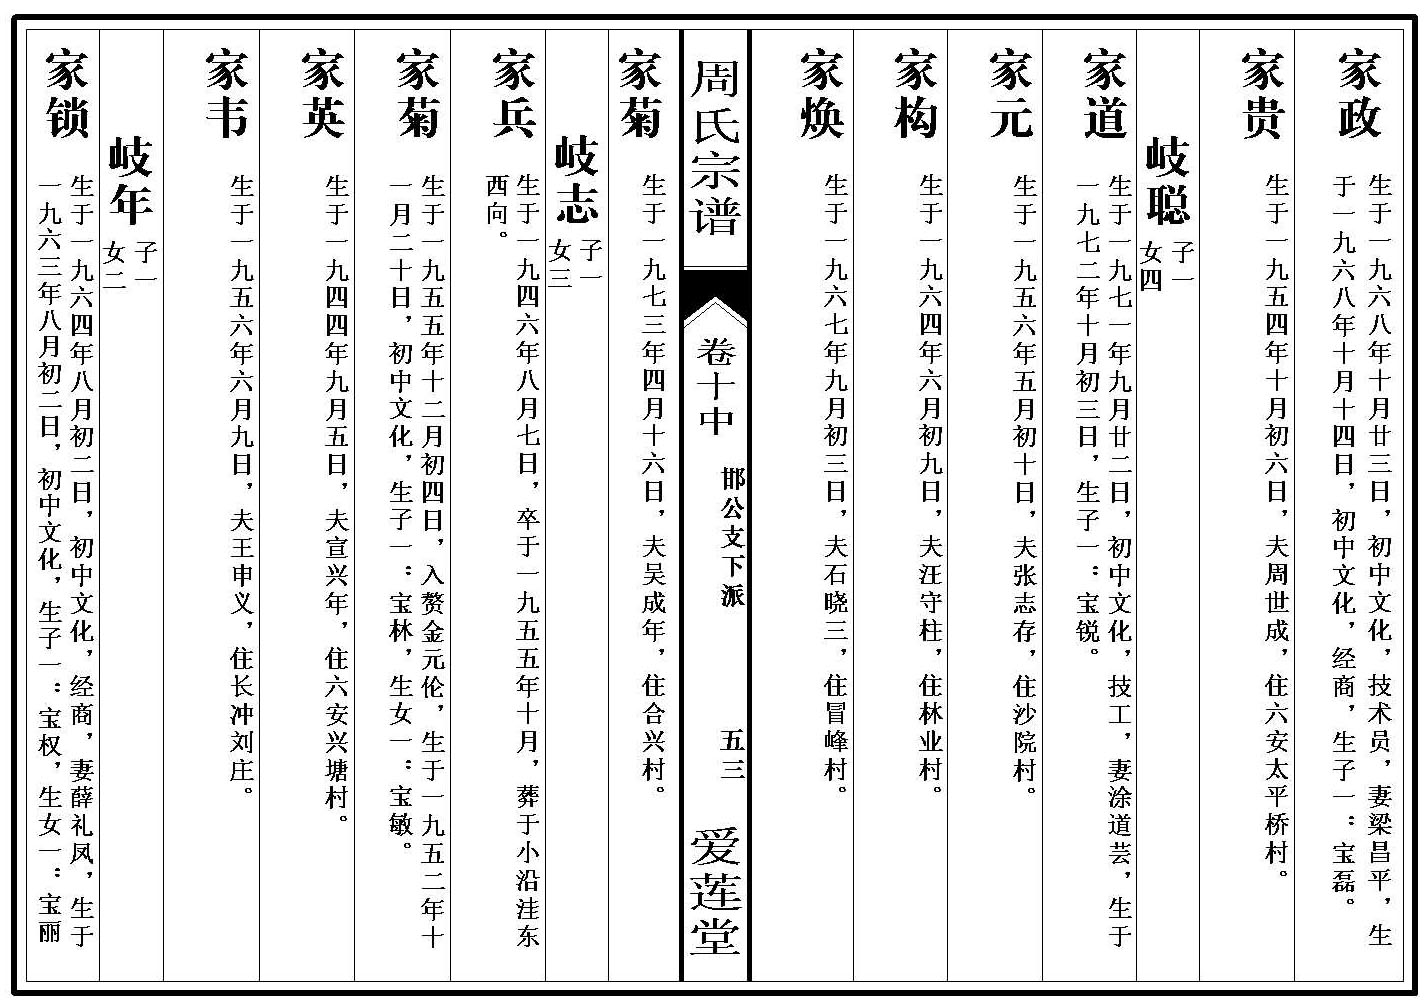 家政
生于一九六八年十月廿三日，初中文化，技术员，妻梁昌平，生
于一九六八年十月十四日，初中文化，经商，生子一：宝磊。
家贵
生于一九五四年十月初六日，夫周世成，住六安太平桥村。
岐聪
子一
女四
家道
生于一九七一年九月廿二日，初中文化，技工，妻涂道芸，生于
一九七二年十月初三日，生子一：宝锐。
家元
生于一九五六年五月初十日，夫张志存，住沙院村。
家构
生于一九六四年六月初九日，夫汪守柱，住林业村。
家焕
生于一九六七年九月初三日，夫石晓三，住冒峰村。
周氏宗谱
卷十中
邯公支下派
五三
爱莲堂
家菊
生于一九七三年四月十六日，夫吴成年，住合兴村。
岐志
子一
女三
家兵
生于一九四六年八月七日，卒于一九五五年十月，葬于小沿洼东
西向。
家菊
生于一九五五年十二月初四日，入赘金元伦，生于一九五二年十
一月二十日，初中文化，生子一：宝林，生女一：宝敏。
家英
生于一九四四年九月五日，夫宣兴年，住六安兴塘村。
家韦
生于一九五六年六月九日，夫王申义，住长冲刘庄。
岐年
子一
女二
家锁
生于一九六四年八月初二日，初中文化，经商，妻薛礼凤，生于
一九六三年八月初二日，初中文化，生子一：宝权，生女一：宝丽